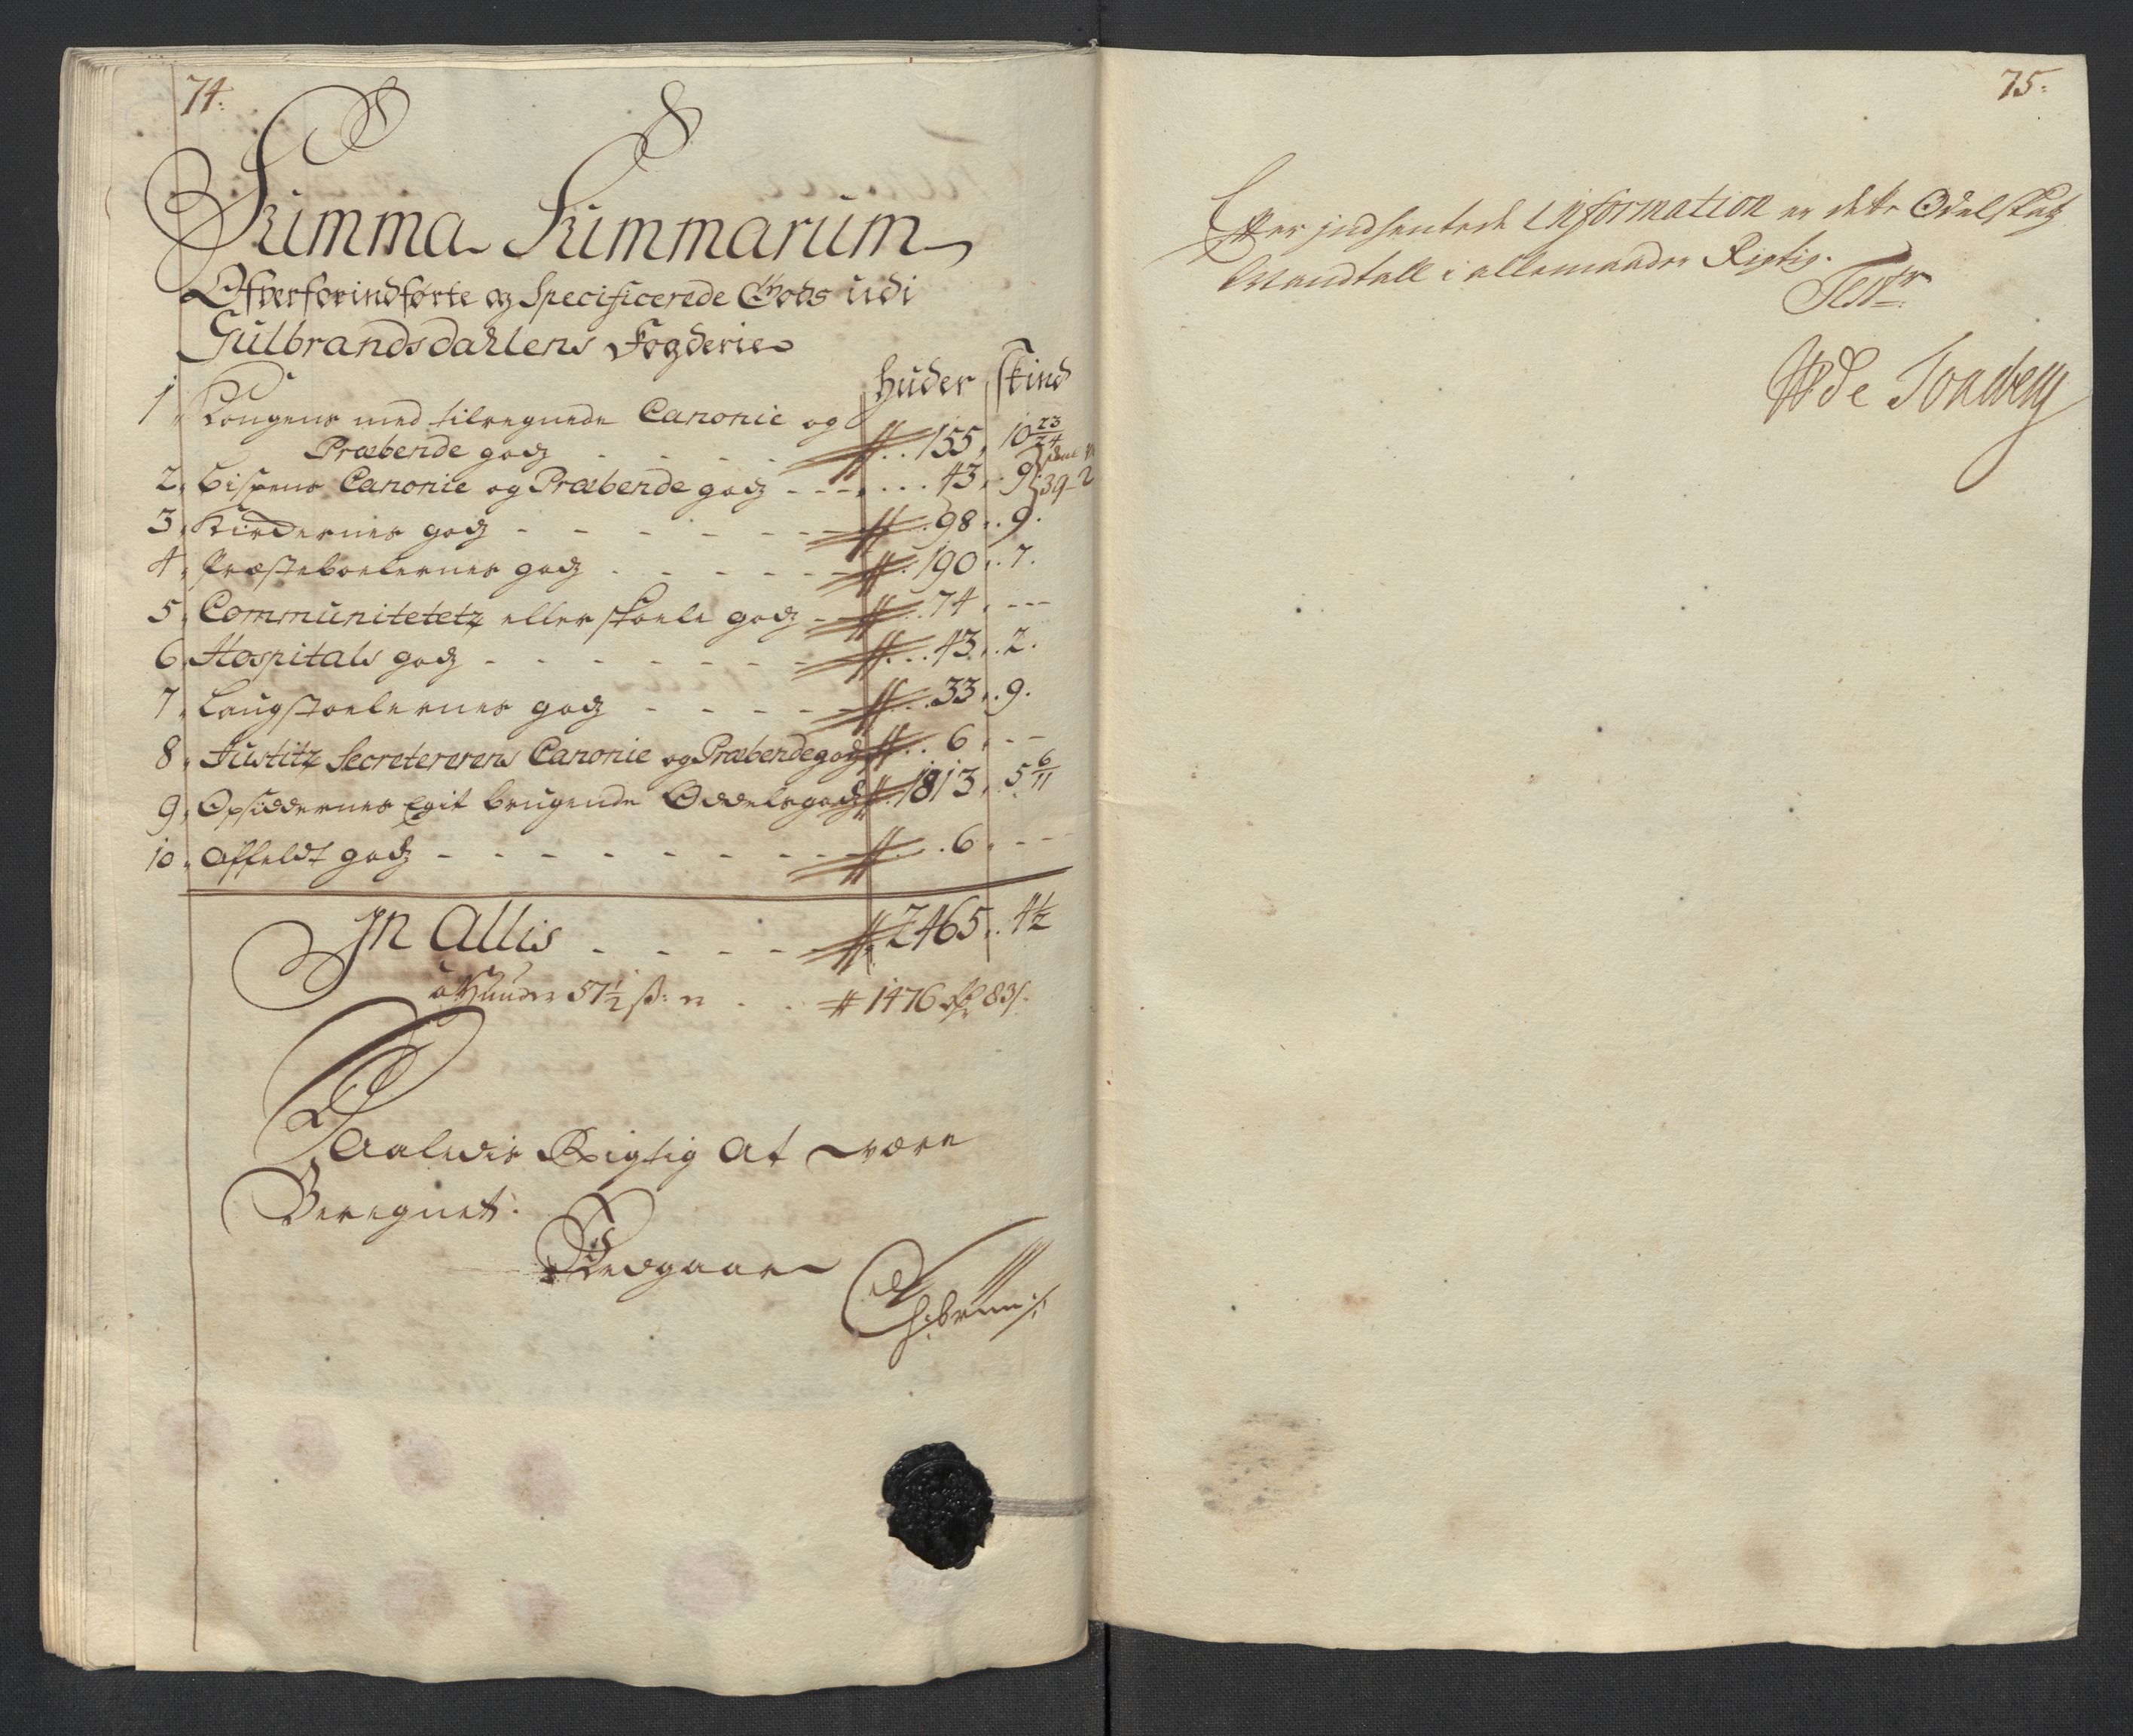 74.
Summa Summarum
Ofverforindførte og Specificerede Gods udi
Gulbrandsdahlens Fogderie
huder skind
1, Kongens med tilregnede Canonie og
Præbende godz - - - - # .. 155, 10 23/24
2, Bispens Canonie og Præbende godz - - - .... 43, . 9 39-2
3, Kirchernes godz - - - - - - # . 98 . . 9.
4, Præsteboelernes godz - - - - - # . 190 . . 7.
5, Communitetetz eller skoele godz - # . . 74 , - - -
6, Hospitals godz - - - - - - - # . . . 43 . . 2.
7, Laugstoelernes godz - - - - # . . . 33 . . 9.
8, Justitz Secretererens Canonie og Præbendegodz # . . 6 , - -
9, Opsiddernes Egit brugende Oddelsgodz # . 1813 , . 5 6/11
10, Affeldt godz - - - - - - - - # . . . 6 , - - -
In Allis - - - - # 2465 . . 4 1/2
a Huuden 57 1/2 ß: er . . # 1476 rdr 83ß.
Saaledis Rigtig at være
Beregnet.
75.
Efter indhentede Information er dette Odelskatz
Mandtall i allemaader Rigtig.
Test: